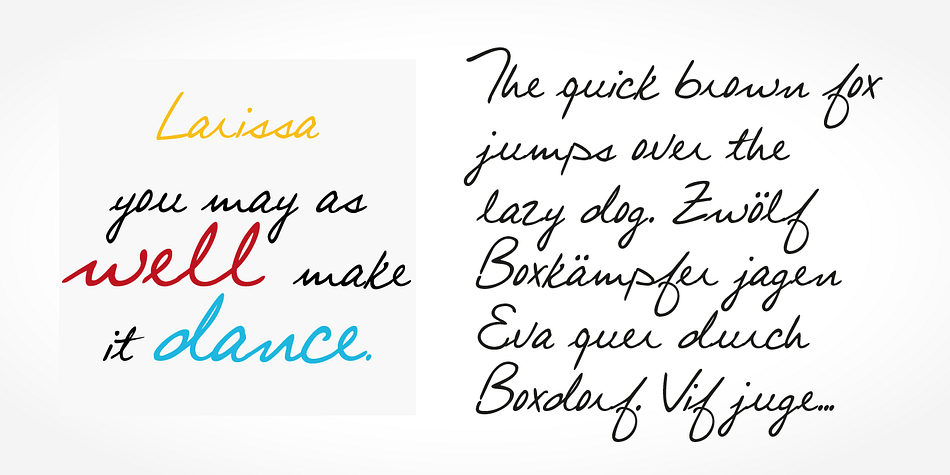 Larissa
you may as
well make
it dance.
The quick brown fox
jumps over the
lazy dog. Zwölf
Boxkämpfer jagen
Eva quer durch
Boxdorf. Vif juge...